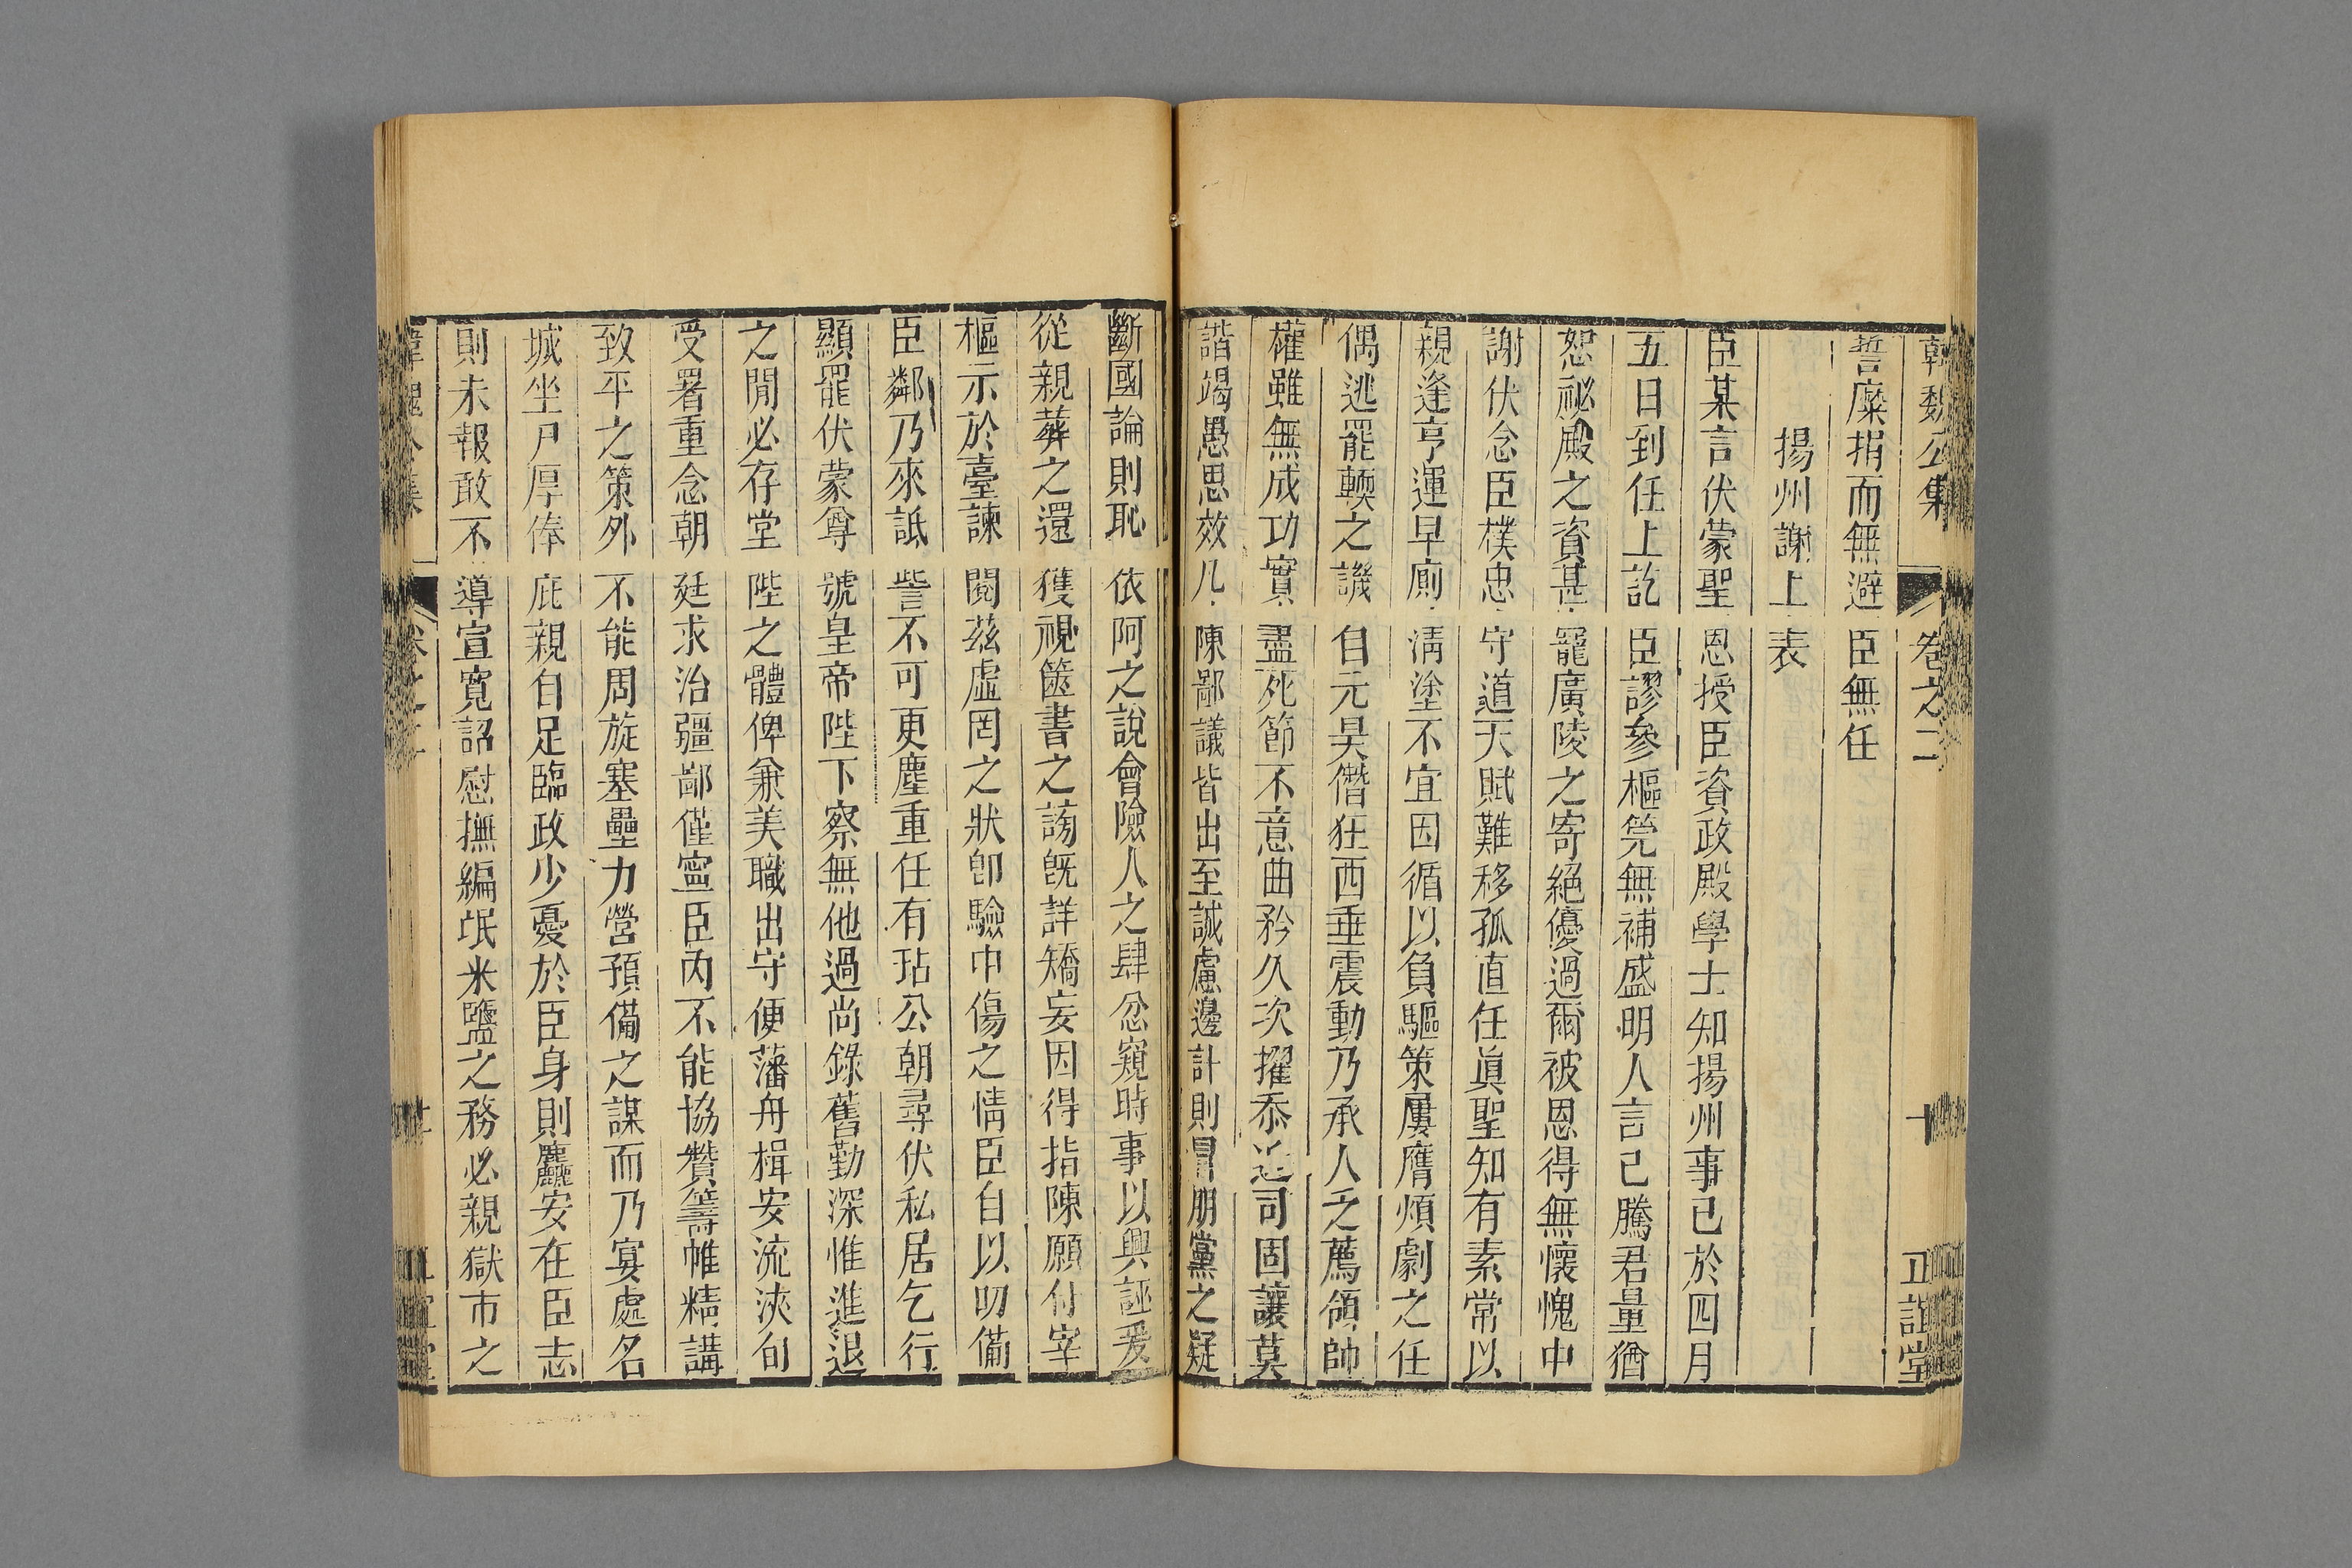 韓魏公集 卷之二 十 正誼堂
誓糜捐而無避臣無任
揚州謝上表
臣某言伏蒙聖恩授臣資政殿學士知揚州事已於四月
五日到任上訖臣謬參樞筦無補盛明人言已騰君量猶
恕祕殿之資甚寵廣陵之寄絕優過爾被恩得無懷愧中
謝伏念臣樸忠守道天賦難移孤直任眞聖知有素常以
親逢亨運早廁淸塗不宜因循以負驅策屢膺煩劇之任
偶逃罷輭之譏自元昊僭狂西垂震動乃承人乏薦領帥
權雖無成功實盡死節不意曲矜久次擢忝近司固讓莫
諧竭愚思效凡陳鄙議皆出至誠慮邊計則冒朋黨之疑
斷國論則恥依阿之說會險人之肆忿窺時事以興誣爰
從親葬之還獲視篋書之謗旣詳矯妄因得指陳願付宰
樞示於臺諫閱茲虛罔之狀卽驗中傷之情臣自以叨備
臣鄰乃來詆訾不可更塵重任有玷公朝尋伏私居乞行
顯罷伏蒙尊號皇帝陛下察無他過尚錄舊勤深惟進退
之閒必存堂陛之體俾兼美職出守便藩舟楫安流浹旬
受署重念朝廷求治疆鄙僅寧臣内不能協贊籌帷精講
致平之策外不能周旋塞壘力營預備之謀而乃宴處名
城坐尸厚俸庇親自足臨政少憂於臣身則麤安在臣志
則未報敢不導宣寬詔慰撫編氓米鹽之務必親獄市之